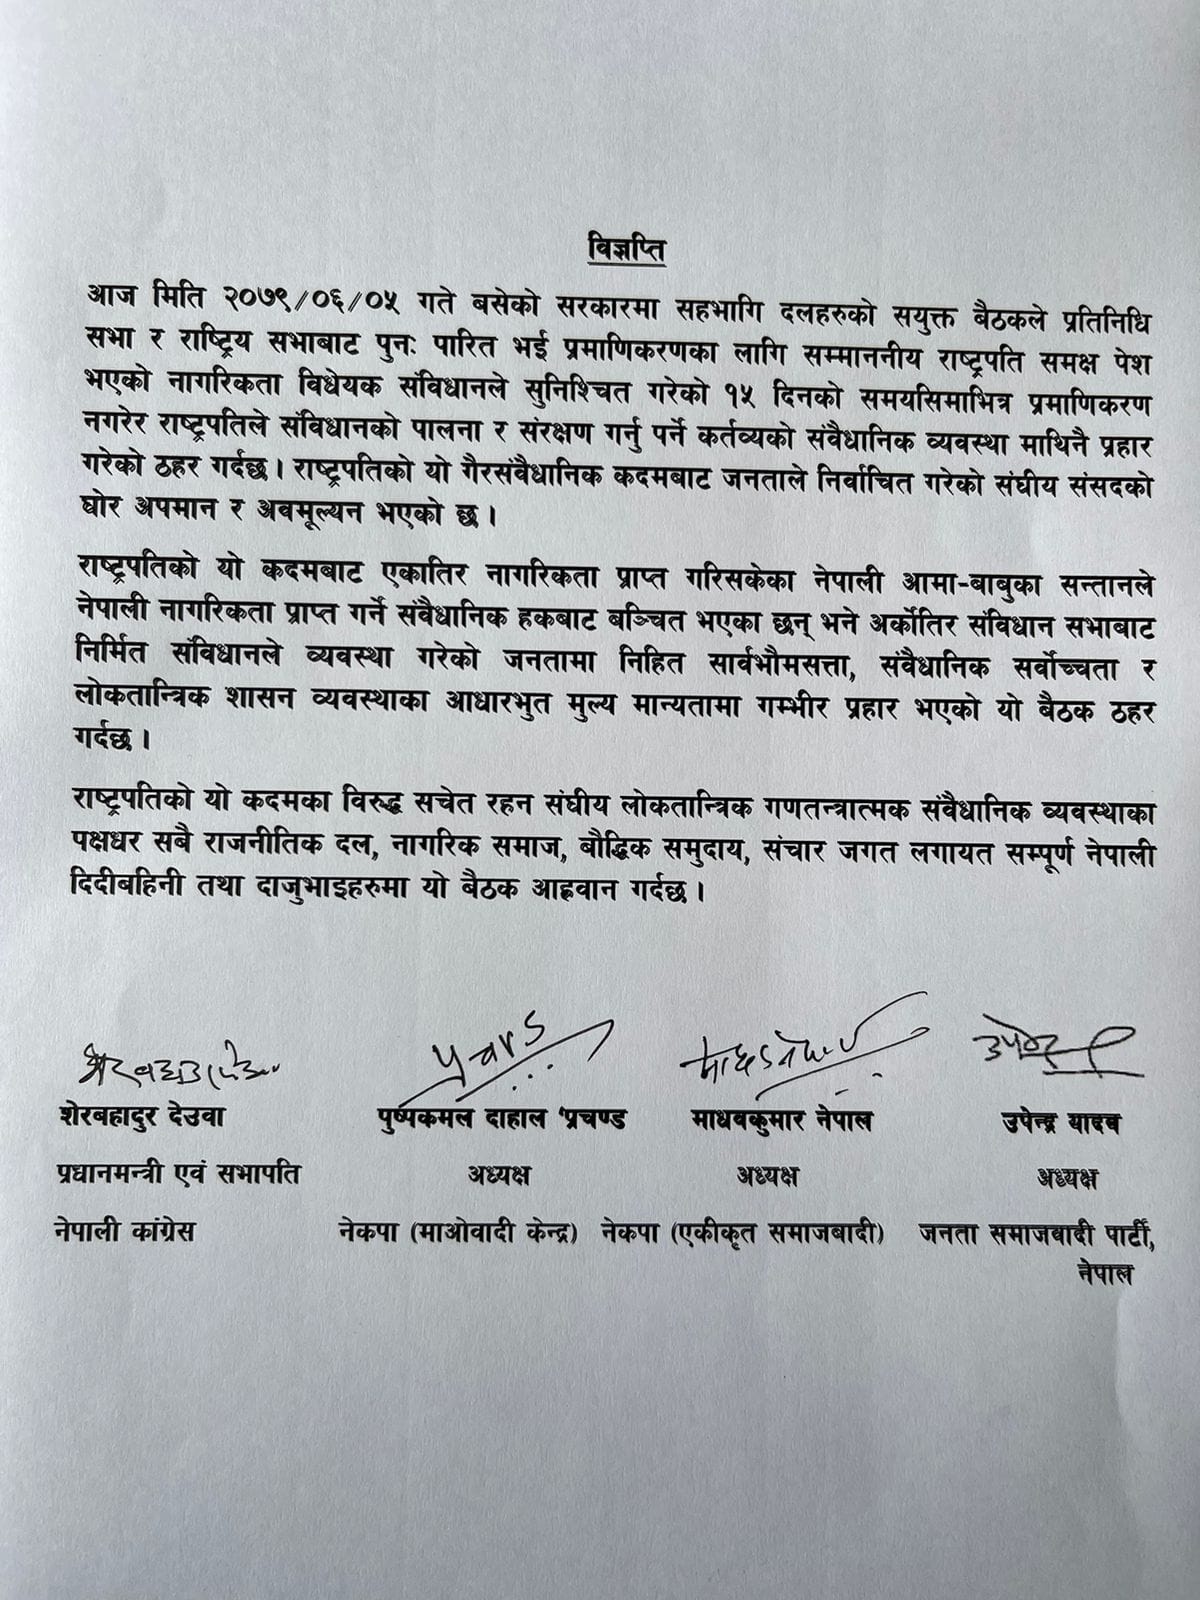 विज्ञप्ति
आज मिति २०७९/०६/०५ गते बसेको सरकारमा सहभागि दलहरुको सयुक्त बैठकले प्रतिनिधि
सभा र राष्ट्रिय सभाबाट पुनः पारित भई प्रमाणिकरणका लागि सम्माननीय राष्ट्रपति समक्ष पेश
भएको नागरिकता विधेयक संविधानले सुनिश्चित गरेको १५ दिनको समयसिमाभित्र प्रमाणिकरण
नगरेर राष्ट्रपतिले संविधानको पालना र संरक्षण गर्नु पर्ने कर्तव्यको संवैधानिक व्यवस्था माथिनै प्रहार
गरेको ठहर गर्दछ। राष्ट्रपतिको यो गैरसंवैधानिक कदमबाट जनताले निर्वाचित गरेको संघीय संसदको
घोर अपमान र अवमूल्यन भएको छ।
राष्ट्रपतिको यो कदमबाट एकातिर नागरिकता प्राप्त गरिसकेका नेपाली आमा-बाबुका सन्तानले
नेपाली नागरिकता प्राप्त गर्ने संवैधानिक हकबाट बञ्चित भएका छन् भने अर्कोतिर संविधान सभाबाट
निर्मित संविधानले व्यवस्था गरेको जनतामा निहित सार्वभौमसत्ता, संवैधानिक सर्वोच्चता र
लोकतान्त्रिक शासन व्यवस्थाका आधारभुत मुल्य मान्यतामा गम्भीर प्रहार भएको यो बैठक ठहर
गर्दछ।
राष्ट्रपतिको यो कदमका विरुद्ध सचेत रहन संघीय लोकतान्त्रिक गणतन्त्रात्मक संवैधानिक व्यवस्थाका
पक्षधर सबै राजनीतिक दल, नागरिक समाज, बौद्धिक समुदाय, संचार जगत लगायत सम्पूर्ण नेपाली
दिदीबहिनी तथा दाजुभाइहरुमा यो बैठक आह्रवान गर्दछ।
शेरबहादुर देउवा पुष्पकमल दाहाल 'प्रचण्ड माधवकुमार नेपाल उपेन्द्र यादव
प्रधानमन्त्री एवं सभापति अध्यक्ष अध्यक्ष अध्यक्ष
नेपाली कांग्रेस नेकपा (माओवादी केन्द्र) नेकपा (एकीकृत समाजबादी) जनता समाजवादी पार्टी,
नेपाल